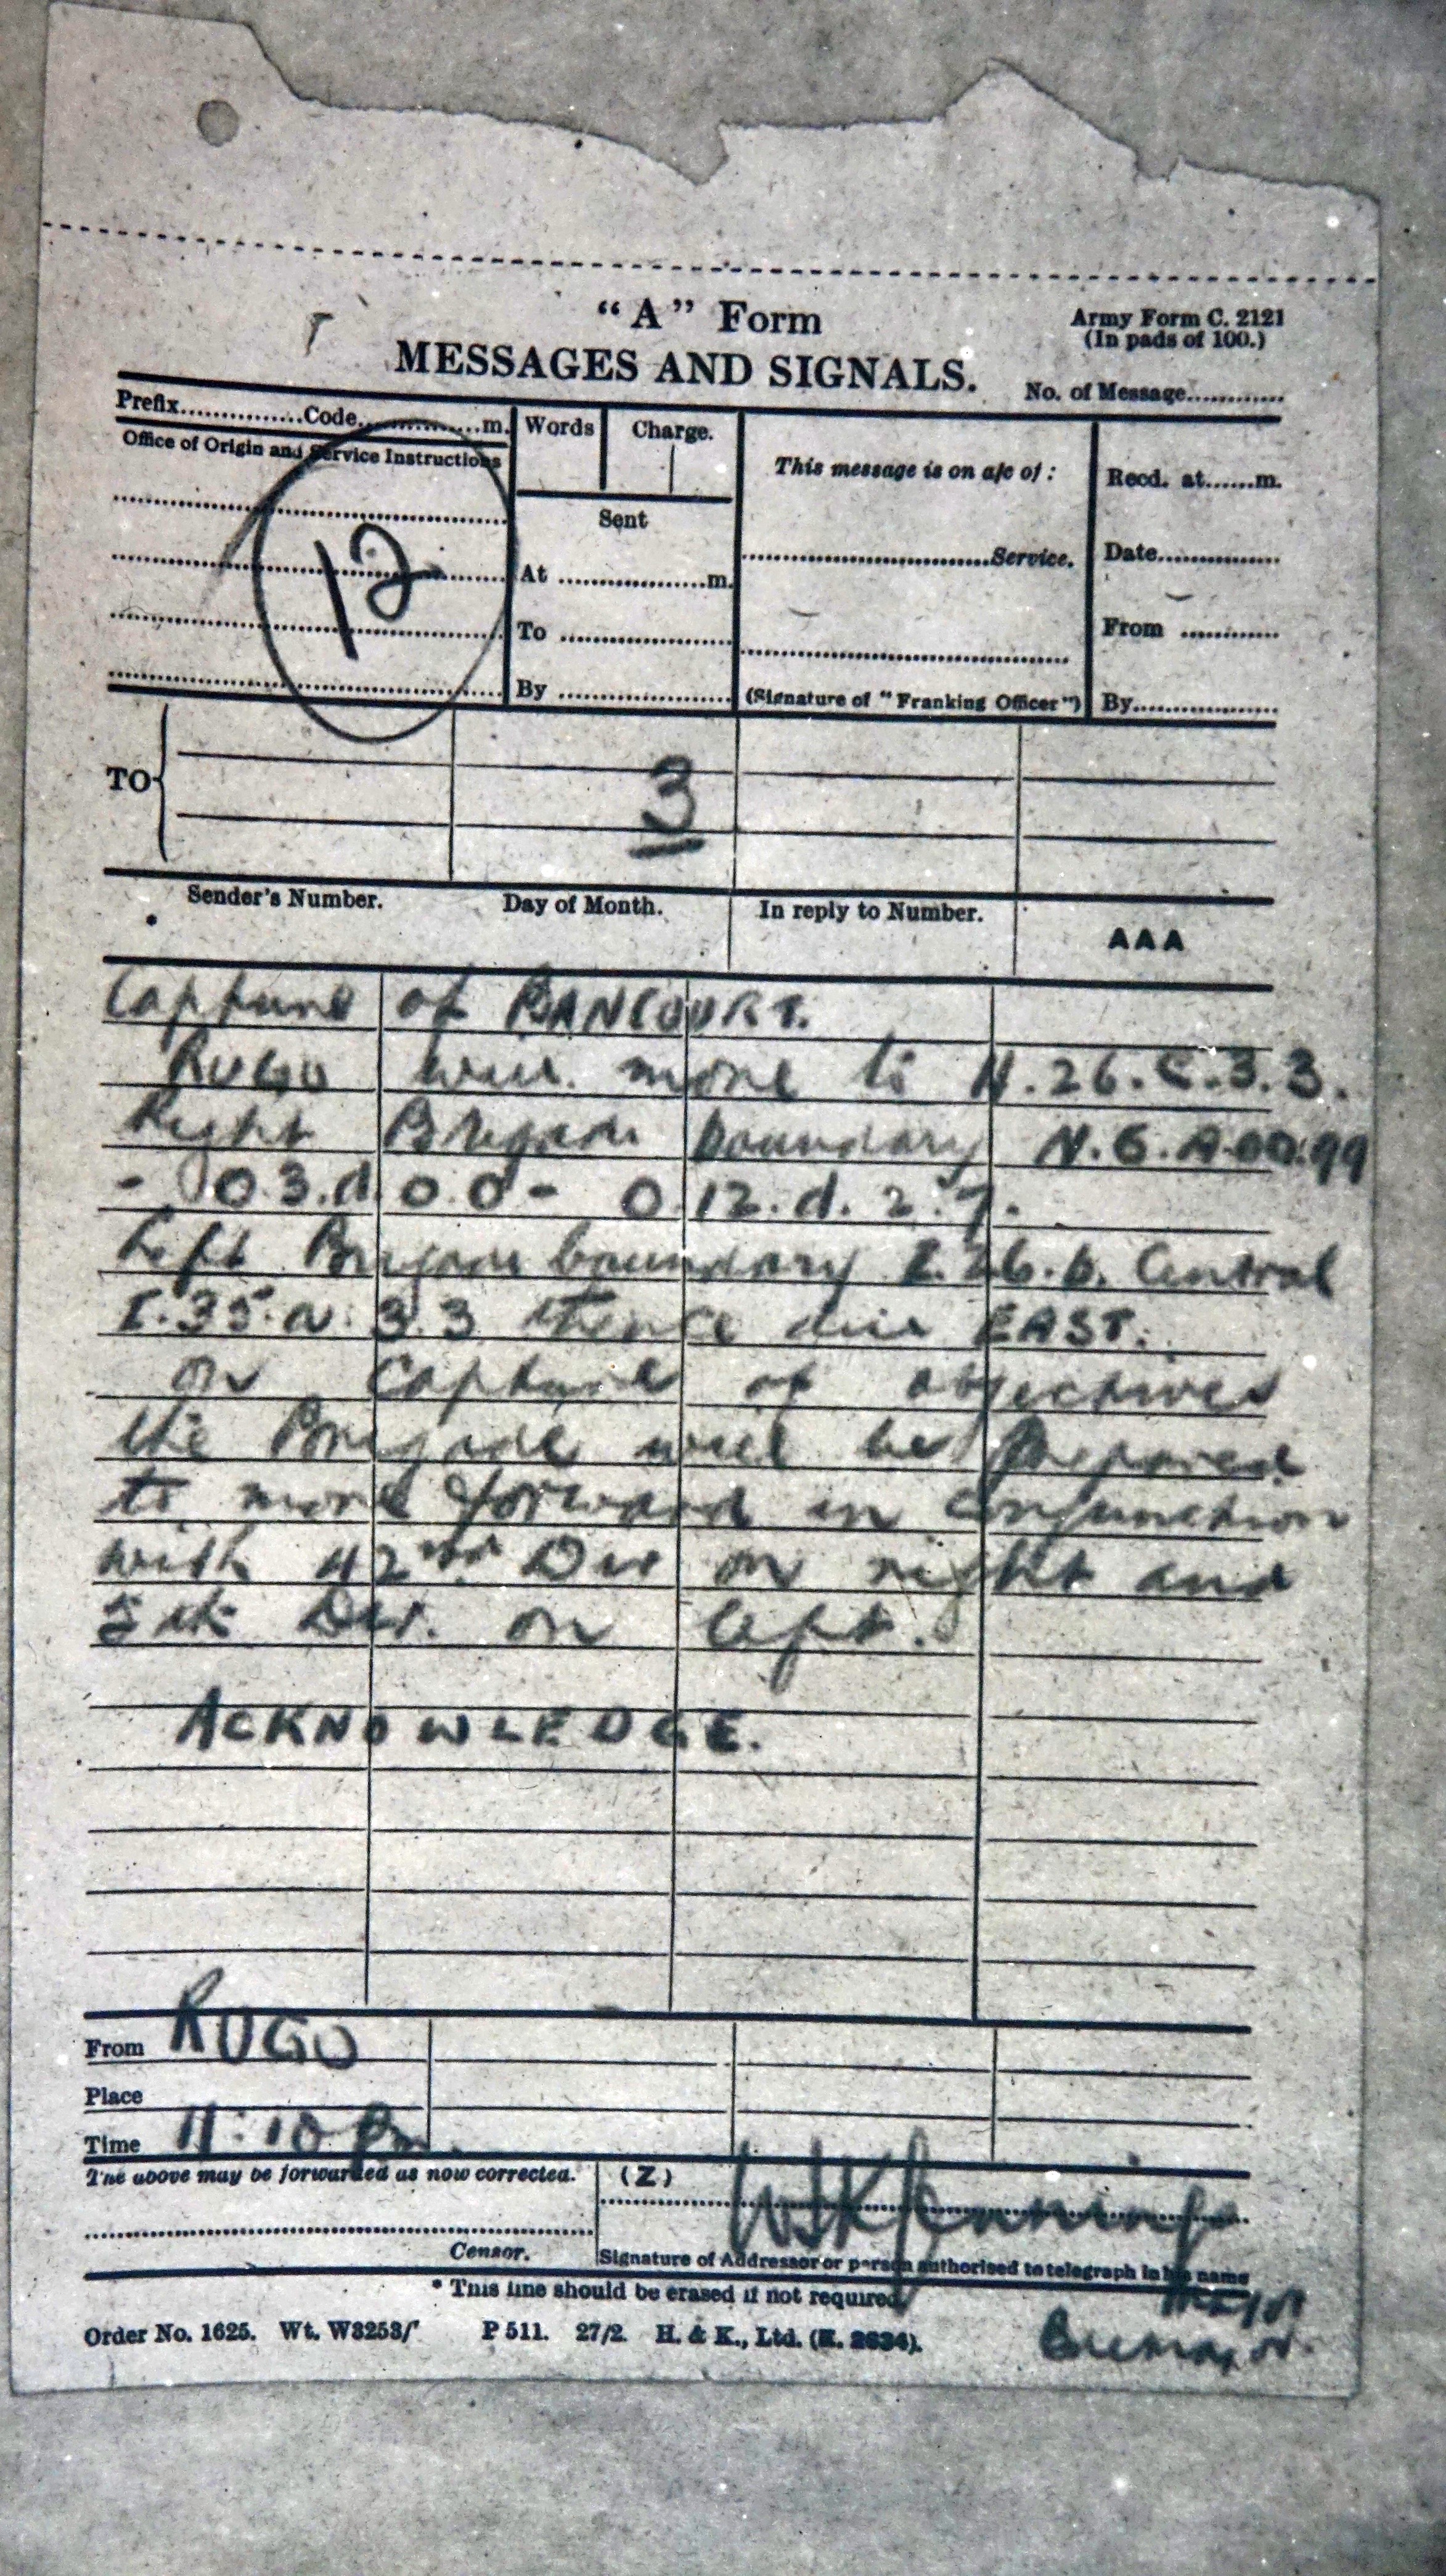 "A" Form
Army Form C. 2121
(In pads of 100.)
MESSAGES AND SIGNALS.
No. of Message............
Prefix...............Code...............m.
Office of Origin and Service Instructions
Words
Charge.
This message is on a/c of :
Recd. at......m.
12
Sent
...........................Service.
Date...............
At ..................m.
To .....................
From ............
By .....................
(Signature of "Franking Officer")
By..................
TO
3
Sender's Number.
Day of Month.
In reply to Number.
AAA
*
Capture of BANCOURT.
RUGO will move to N.26.C.3.3.
Right Brigade boundary N.6.A.00.99
- O.3.d.0.0 - O.12.d.2.7.
Left Brigade boundary I.26.b. Central
I.35.a.3.3 thence due EAST.
On capture of objectives
the Brigade will be prepared
to move forward in conjunction
with 42nd Div on right and
5th Div. on left.
ACKNOWLEDGE.
From RUGO
Place
Time 11:10 pm.
The above may be forwarded as now corrected.
(Z)
Censor.
Signature of Addressor or person authorised to telegraph in his name
* This line should be erased if not required.
Major
Order No. 1625. Wt. W3253/ P 511. 27/2. H. & K., Ltd. (E. 2634).